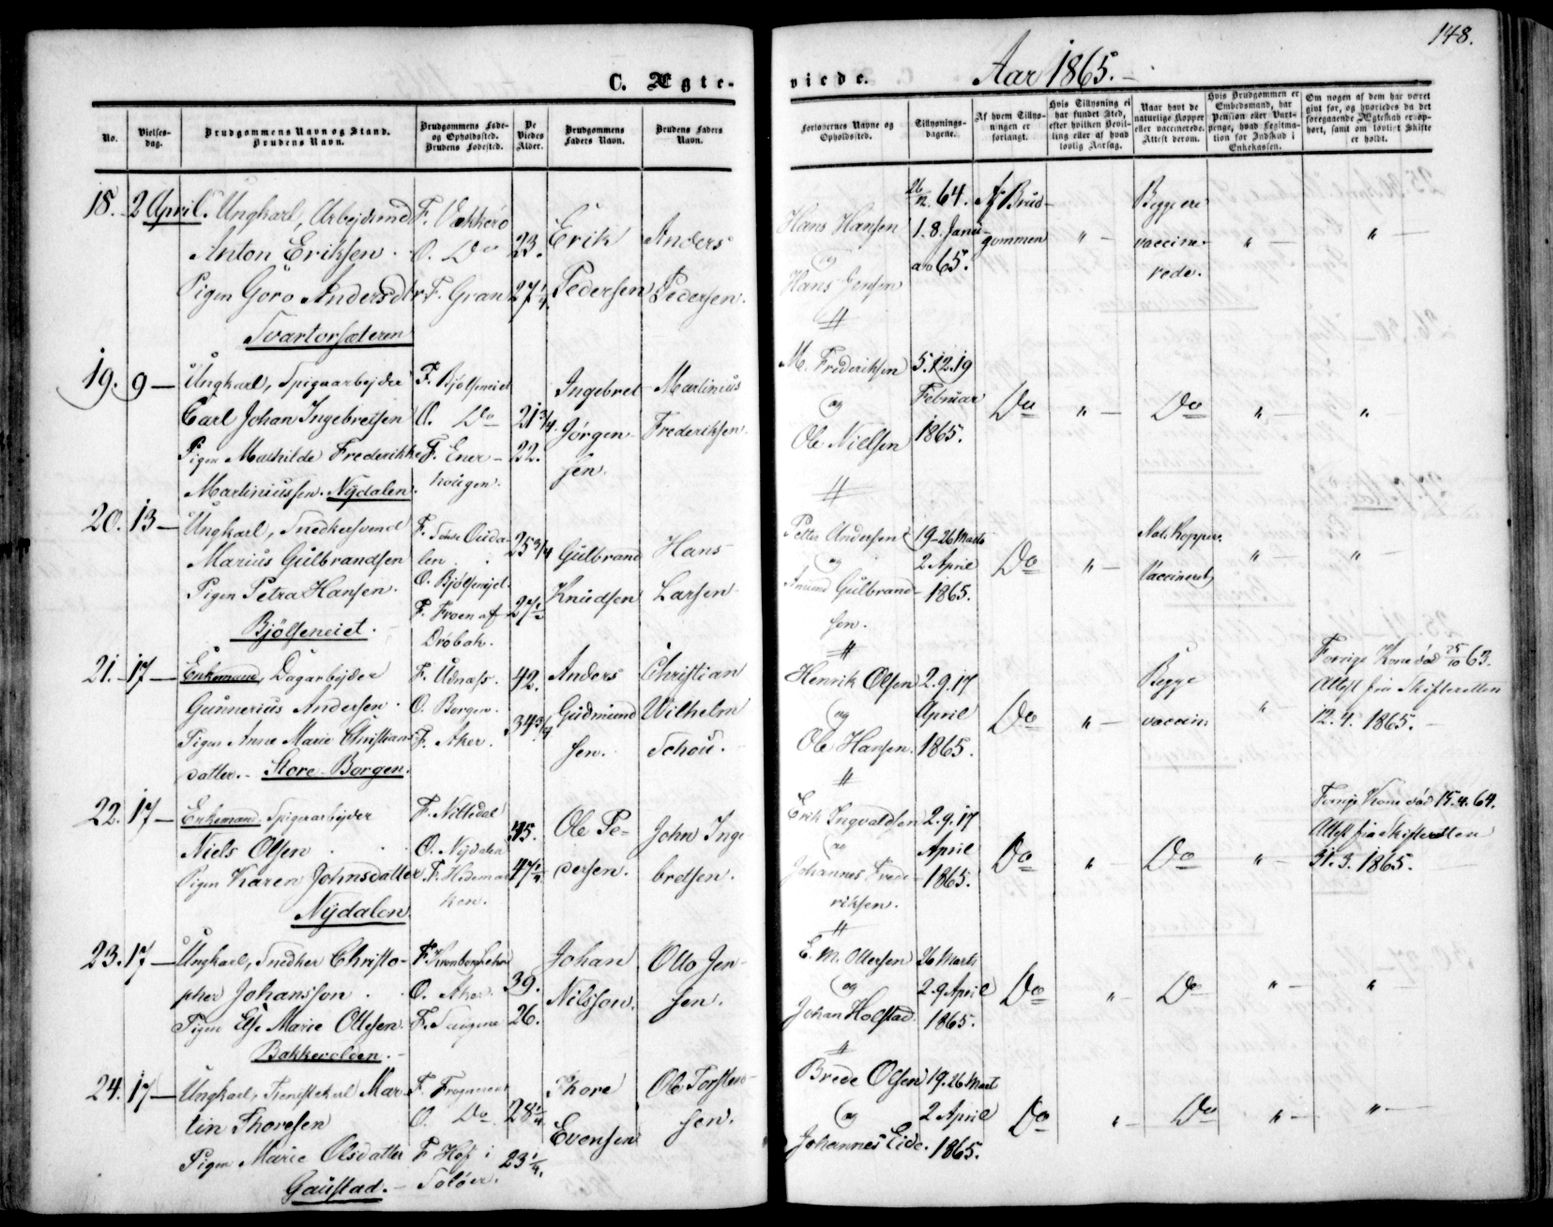 148.
C. Ægte-
viede.
Aar 1865.
No.
Vielses-
dag.
Brudgommens Navn og Stand.
Brudens Navn.
Brudgommens Føde-
og Opholdssted.
Brudens Fødested.
De
Viedes
Alder.
Brudgommens
Faders Navn.
Brudens Faders
Navn.
Forlovernes Navne og
Opholdssted.
Tillysnings-
dagene.
Af hvem Tillys-
ningen er
forlangt.
Hvis Tillysning ei
har fundet Sted,
efter hvilken Bevil-
ling eller af hvad
lovlig Aarsag.
Naar havt de
naturlige Kopper
eller vaccinerede.
Attest derom.
Hvis Brudgommen er
Embedsmand, har
Pension eller Vart-
penge, hvad Legitima-
tion for Indskud i
Enkekassen.
Om nogen af dem har været
gift før, og hvorledes da det
foregaaende Ægteskab er op-
hørt, samt om lovligt Skifte
er holdt.
18. 2 April. Ungkarl, Arbejdsmd
Anton Eriksen
Pigen Goro Andersdtr
Svartorsæteren
F. Vækkerø
O. Do
F. Gran
23.
27 1/4.
Erik
Pedersen
Anders
Pedersen.
Hans Hansen
og
Hans Jensen
26/12 64.
1. 8. Janu-
ar 65.
af Brud-
gommen
Begge ere
vaccine-
rede.
19. 9 — Ungkarl, Spigerarbejder
Carl Johan Ingebretsen
Pigen Mathilde Frederikke
Martiniussen. Nydalen.
F. Bjølseneiet
O. Do
F. Ener-
hougen.
21 3/4.
22.
Ingebret
Jørgen-
sen.
Martinius
Frederiksen.
M. Frederiksen
og
Ole Nielsen
5. 12. 19
Februar
1865.
Do
Do
20. 13 — Ungkarl, Snedkersvend
Marius Gulbrandsen
Pigen Petra Hansen.
Bjølseneiet.
F. Søndre Ouda-
len
O. Bjølseneiet
F. Froen af
Drøbak.
25 3/4
27 1/2
Gulbrand
Knudsen
Hans
Larsen
Petter Andersen
og
Amund Gulbrand-
sen.
19. 26 Marts
2 April
1865.
Do
Nat. Kopper.
Vaccineret
21. 17 — Enkemand, Dagarbejder
Gunnerius Andersen
Pigen Anne Marie Christians-
datter. Store Borgen.
F. Udnæss.
O. Borgen.
F. Aker.
42.
34 3/4
Anders
Gudmund
sen.
Christian
Wilhelm
Schou.
Henrik Olsen
og
Ole Hansen.
2. 9. 17
April
1865.
Do
Begge
vaccin.
Forrige Kone død 25/10 63.
Attest fra Skifteretten
12. 4. 1865.
22. 17 — Enkemand. Spigerarbejder
Niels Olsen
Pigen Karen Johnsdatter
Nydalen.
F. Nittedal
O. Nydalen
F. Hedemar
ken.
45.
47 1/4
Ole Pe-
dersen.
John Inge
bretsen.
Erik Ingvaldsen
og
Johannes Frede-
riksen.
2. 9. 17
April
1865.
Do
Do
Forrige Kone død 15. 4. 64.
Attest fra Skifteretten
31. 3. 1865.
23. 17 — Ungkarl, Snedker Christo-
pher Johansson
Pigen Else Marie Ottesen.
Bakkevolden.
O. Aker.
39.
26.
Johan
Nilsson.
Otto Jen-
sen.
E. M. Ottersen
og
Johan Holstad.
26 Marts
2. 9 April
1865.
Do
Do
24. 17 — Ungkarl, Tjenestekarl Mar-
tin Thoresen
Pigen Marie Olsdatter
Gaustad.
F. Frogneren
O. Do
F. Hof i
Soløer.
28 1/4
23 1/4.
Thore
Evensen
Ole Torsten-
sen.
Brede Olsen
og
Johannes Eide.
19. 26 Mart
2 April
1865.
Do
Do